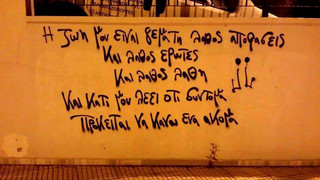 Η ζωη μου ειναι γεματη λαθος αποφασεις
Και λαθος ερωτες
Και λαθος λαθη
Και κατι μου λεει οτι συντομα
Προκειται να κανω ενα ακομα